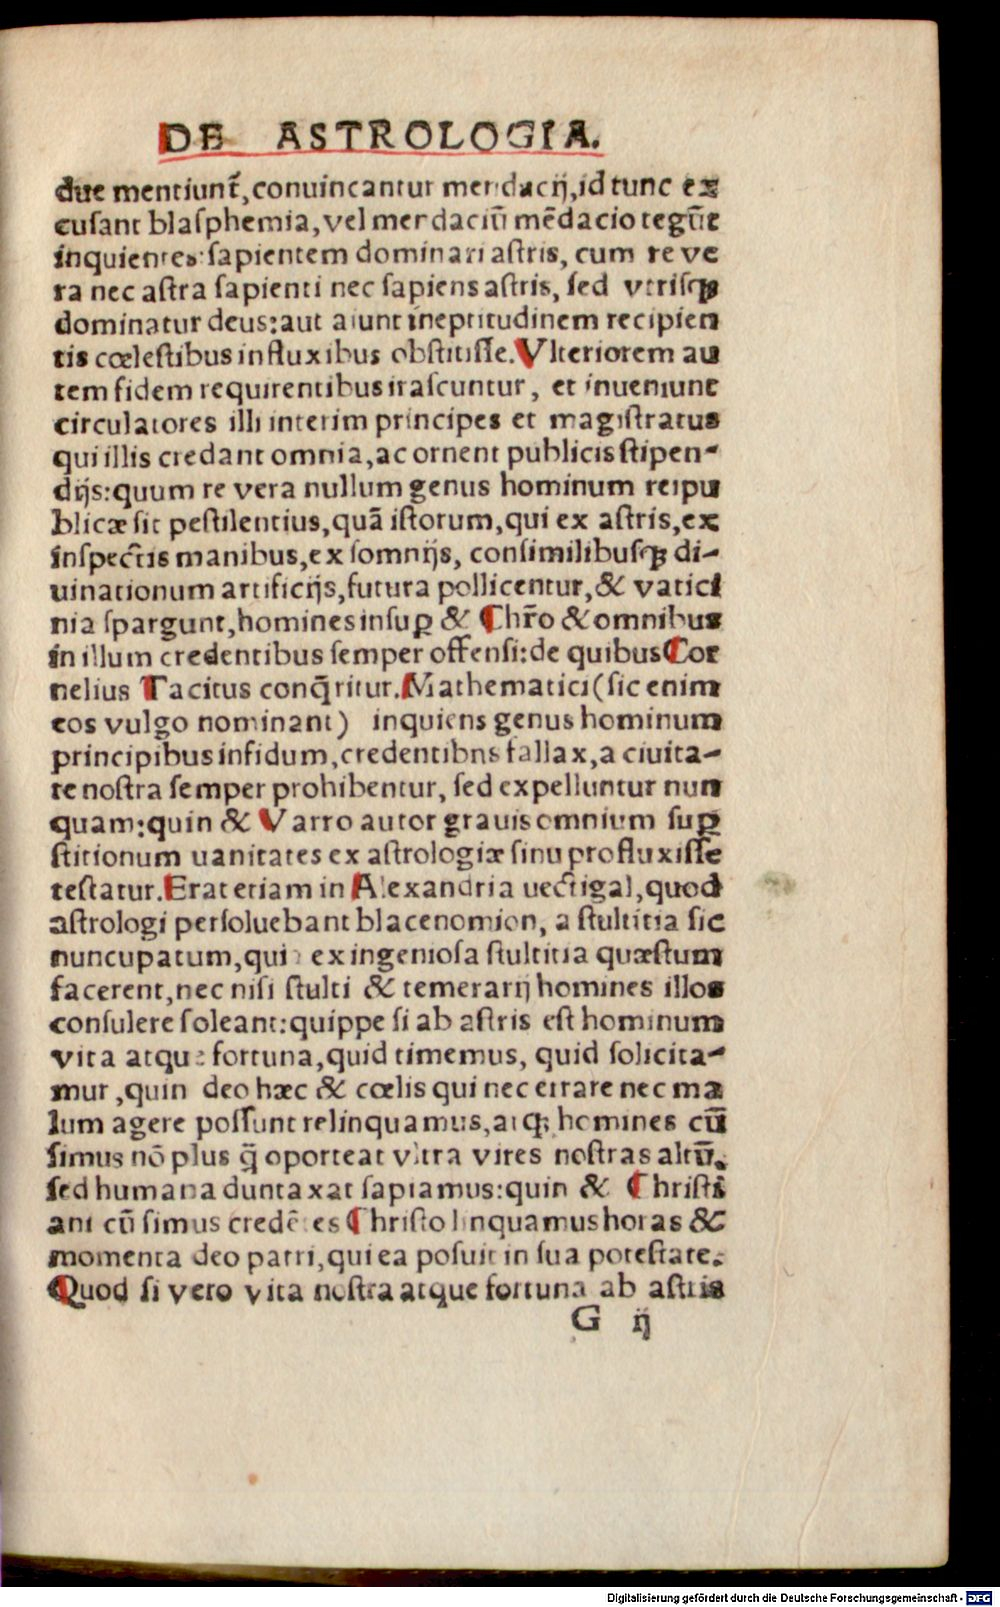 DE ASTROLOGIA.
due mentiunt̃, conuincantur mendacij, id tunc ex
cusant blasphemia, vel mendaciū mēdacio tegūt
inquientes: sapientem dominari astris, cum re ve
ra nec astra sapienti nec sapiens astris, sed vtrisqꝫ
dominatur deus: aut aiunt ineptitudinem recipien
tis cœlestibus influxibus obstitisse. Vlteriorem au
tem fidem requirentibus irascuntur, et inueniunt
circulatores illi interim principes et magistratus
qui illis credant omnia, ac ornent publicis stipen-
dijs: quum re vera nullum genus hominum reipu
blicæ sit pestilentius, quā istorum, qui ex astris, ex
inspectis manibus, ex somnijs, consimilibusqꝫ di-
uinationum artificijs, futura pollicentur, & vatici
nia spargunt, homines insuꝑ & Chr̄o & omnibus
in illum credentibus semper offensi: de quibus Cor
nelius Tacitus conq̄ritur. Mathematici (sic enim
eos vulgo nominant) inquiens genus hominum
principibus infidum, credentibns fallax, a ciuita-
te nostra semper prohibentur, sed expelluntur nun
quam: quin & Varro autor grauis omnium suꝑ
stitionum uanitates ex astrologiæ sinu profluxisse
testatur. Erat etiam in Alexandria uectigal, quod
astrologi persoluebant blacenomion, a stultitia sic
nuncupatum, qui ex ingeniosa stultitia quæstum
facerent, nec nisi stulti & temerarij homines illos
consulere soleant: quippe si ab astris est hominum
vita atque fortuna, quid timemus, quid solicita-
mur, quin deo hæc & cœlis qui nec errare nec ma
lum agere possunt relinquamus, atqꝫ homines cū
simus nō plus q̄ oporteat vltra vires nostras altū.
sed humana duntaxat sapiamus: quin & Christi
ani cū simus credētes Christo linquamus horas &
momenta deo patri, qui ea posuit in sua potestate.
Quod si vero vita nostra atque fortuna ab astris
G ij
Digitalisierung gefördert durch die Deutsche Forschungsgemeinschaft - DFG